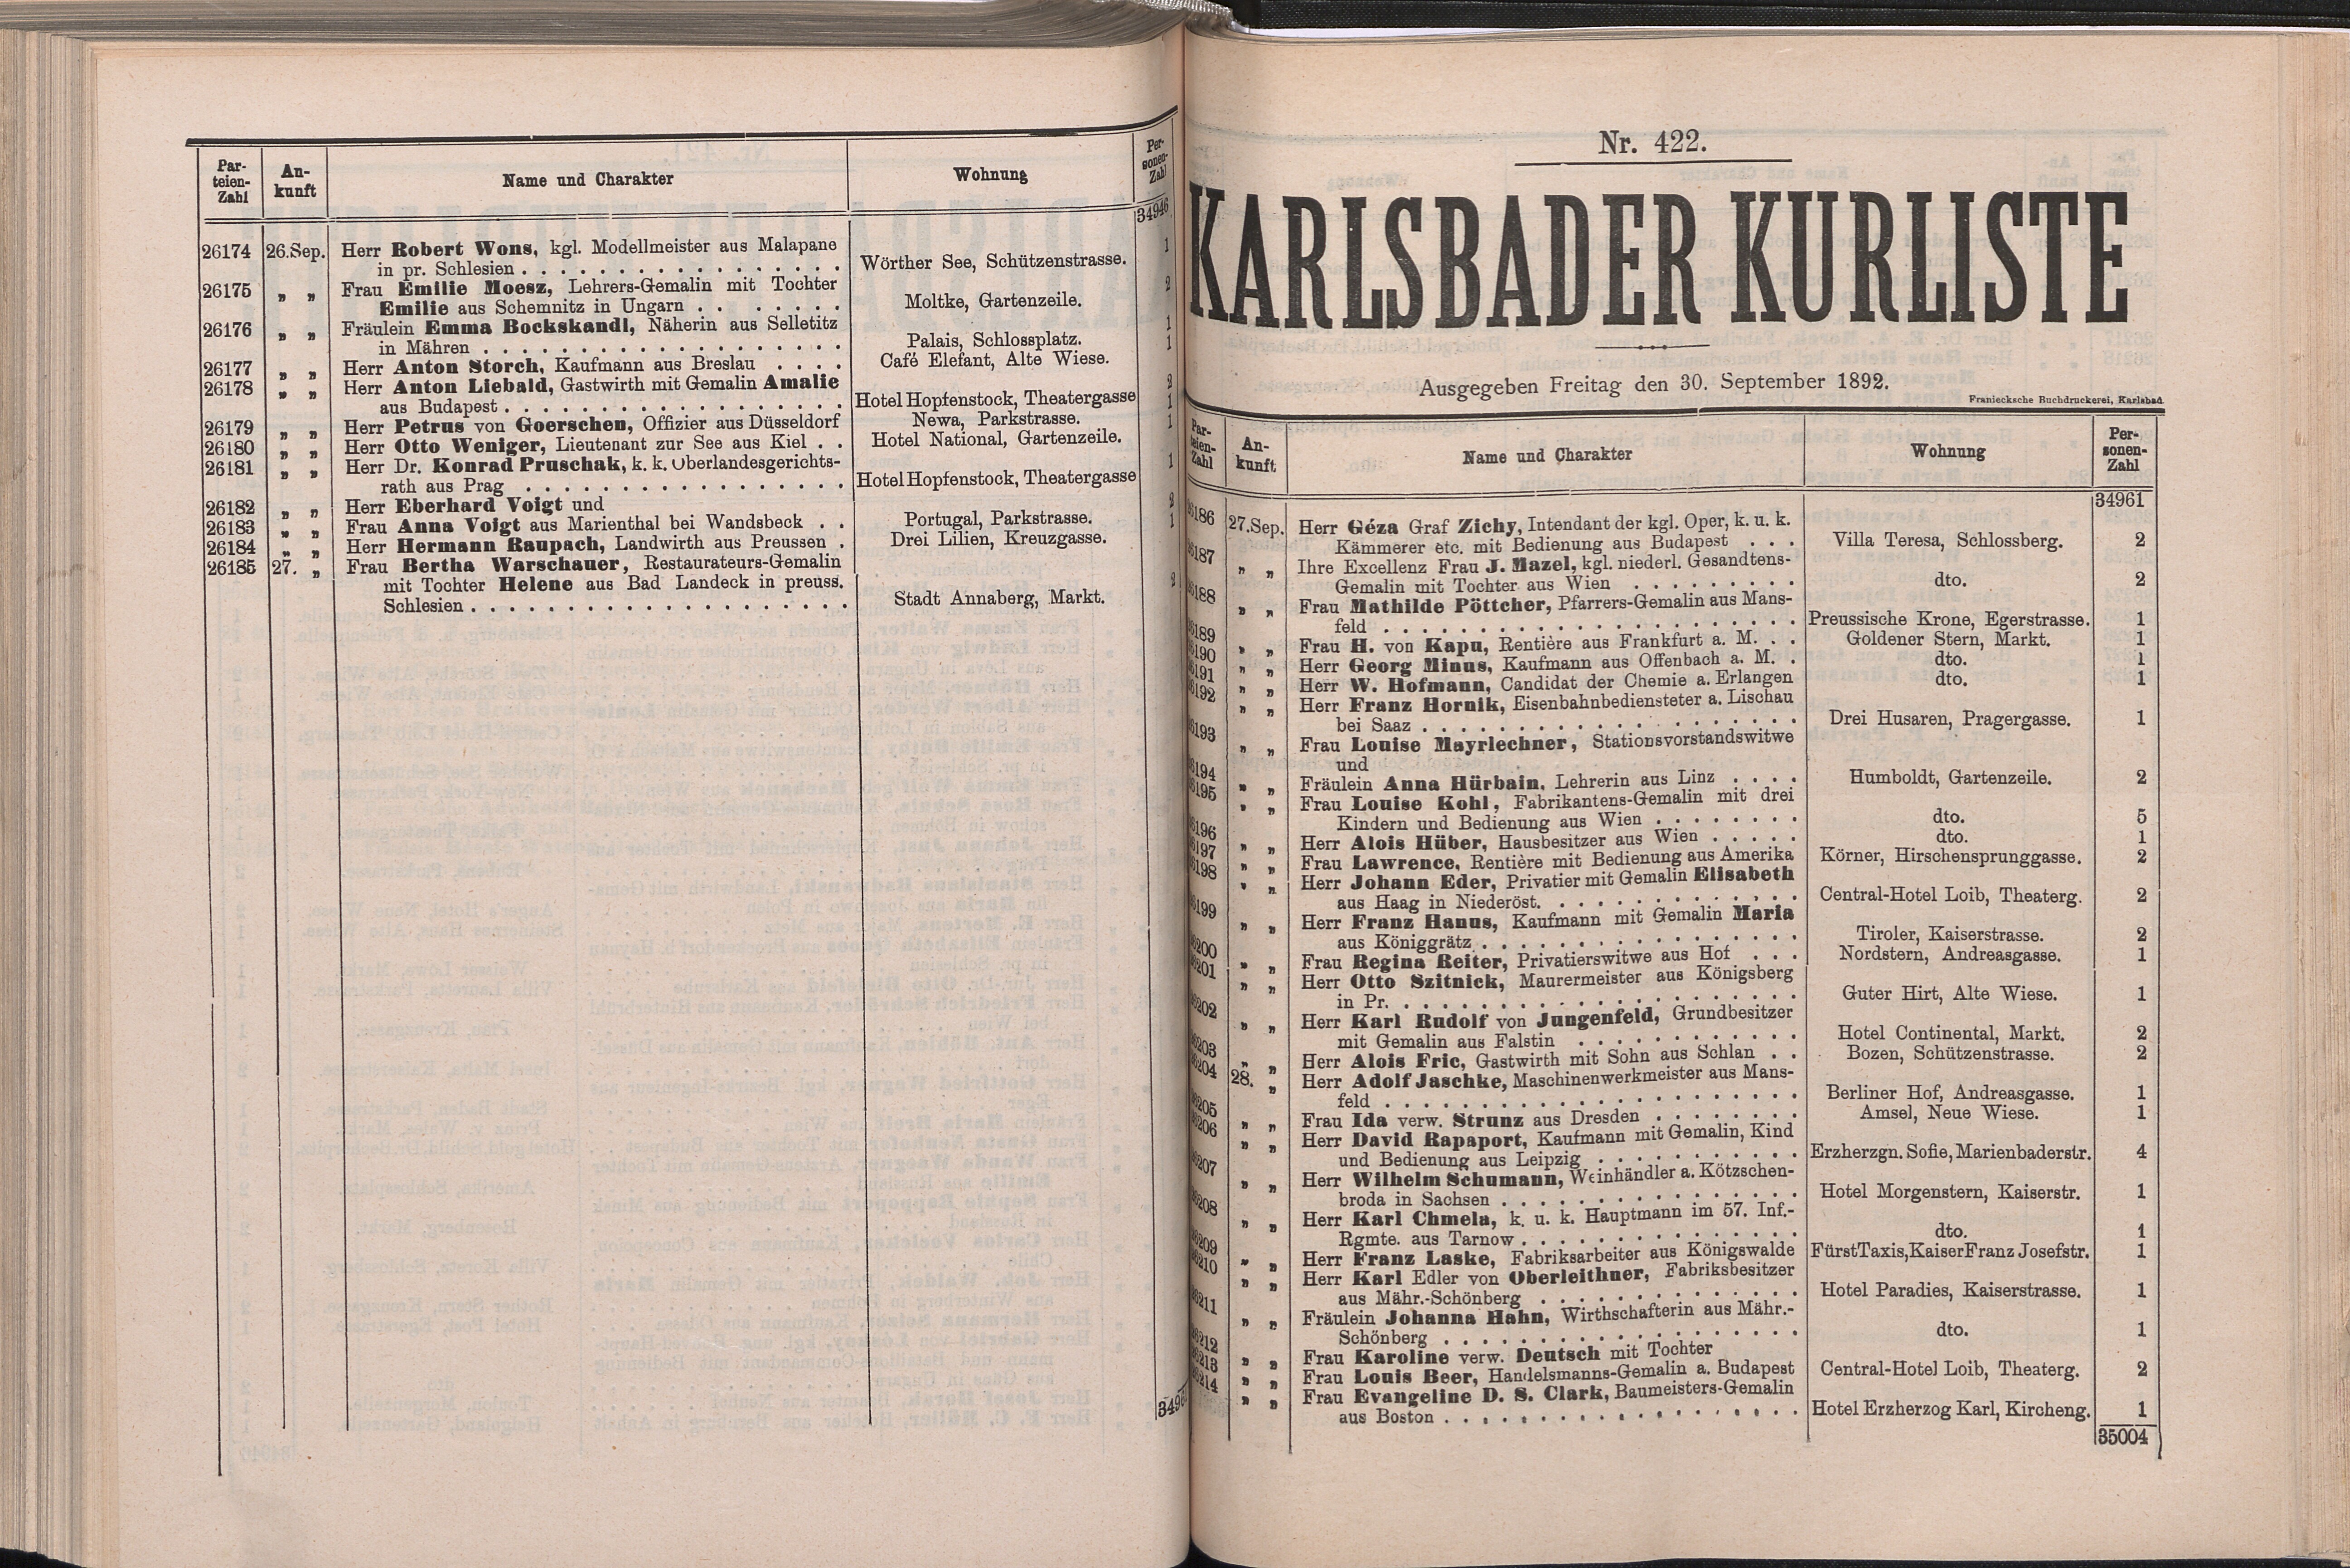 Par-
teien-
Zahl
An-
kunft
Name und Charakter
Wohnung
Per-
sonen-
Zahl
34946
26174 26.Sep. Herr Robert Wons, kgl. Modellmeister aus Malapane
in pr. Schlesien . . . . . . . . . . . . . . . . Wörther See, Schützenstrasse. 1
26175 „ „ Frau Emilie Moesz, Lehrers-Gemalin mit Tochter
Emilie aus Schemnitz in Ungarn . . . . . . . . Moltke, Gartenzeile. 2
26176 „ „ Fräulein Emma Bockskandl, Näherin aus Selletitz
in Mähren . . . . . . . . . . . . . . . . . . Palais, Schlossplatz. 1
26177 „ „ Herr Anton Storch, Kaufmann aus Breslau . . . . Café Elefant, Alte Wiese. 1
26178 „ „ Herr Anton Liebald, Gastwirth mit Gemalin Amalie
aus Budapest . . . . . . . . . . . . . . . . . Hotel Hopfenstock, Theatergasse 2
26179 „ „ Herr Petrus von Goerschen, Offizier aus Düsseldorf Newa, Parkstrasse. 1
26180 „ „ Herr Otto Weniger, Lieutenant zur See aus Kiel . . Hotel National, Gartenzeile. 1
26181 „ „ Herr Dr. Konrad Pruschak, k. k. Oberlandesgerichts-
rath aus Prag . . . . . . . . . . . . . . . . Hotel Hopfenstock, Theatergasse 1
26182 „ „ Herr Eberhard Voigt und
26183 „ „ Frau Anna Voigt aus Marienthal bei Wandsbeck . . Portugal, Parkstrasse. 2
26184 „ „ Herr Hermann Raupach, Landwirth aus Preussen . Drei Lilien, Kreuzgasse. 1
26185 27. „ Frau Bertha Warschauer, Restaurateurs-Gemalin
mit Tochter Helene aus Bad Landeck in preuss.
Schlesien . . . . . . . . . . . . . . . . . . . Stadt Annaberg, Markt. 2
3496
Nr. 422.
KARLSBADER KURLISTE
Ausgegeben Freitag den 30. September 1892.
Franiecksche Buchdruckerei, Karlsbad.
Par-
teien-
Zahl
An-
kunft
Name und Charakter
Wohnung
Per-
sonen-
Zahl
34961
6186 27.Sep. Herr Géza Graf Zichy, Intendant der kgl. Oper, k. u. k.
Kämmerer etc. mit Bedienung aus Budapest . . . Villa Teresa, Schlossberg. 2
6187 „ „ Ihre Excellenz Frau J. Mazel, kgl. niederl. Gesandtens-
Gemalin mit Tochter aus Wien . . . . . . . . . dto. 2
6188 „ „ Frau Mathilde Pöttcher, Pfarrers-Gemalin aus Mans-
feld . . . . . . . . . . . . . . . . . . . . . Preussische Krone, Egerstrasse. 1
6189 „ „ Frau H. von Kapu, Rentière aus Frankfurt a. M. . . Goldener Stern, Markt. 1
6190 „ „ Herr Georg Minus, Kaufmann aus Offenbach a. M. . dto. 1
6191 „ „ Herr W. Hofmann, Candidat der Chemie a. Erlangen dto. 1
6192 „ „ Herr Franz Hornik, Eisenbahnbediensteter a. Lischau
bei Saaz . . . . . . . . . . . . . . . . . . . Drei Husaren, Pragergasse. 1
6193 „ „ Frau Louise Mayrlechner, Stationsvorstandswitwe
und
6194 „ „ Fräulein Anna Hürbain, Lehrerin aus Linz . . . . Humboldt, Gartenzeile. 2
6195 „ „ Frau Louise Kohl, Fabrikantens-Gemalin mit drei
Kindern und Bedienung aus Wien . . . . . . . . dto. 5
6196 „ „ Herr Alois Hüber, Hausbesitzer aus Wien . . . . . dto. 1
6197 „ „ Frau Lawrence, Rentière mit Bedienung aus Amerika Körner, Hirschensprunggasse. 2
6198 „ „ Herr Johann Eder, Privatier mit Gemalin Elisabeth
aus Haag in Niederöst. . . . . . . . . . . . . Central-Hotel Loib, Theaterg. 2
6199 „ „ Herr Franz Hanus, Kaufmann mit Gemalin Maria
aus Königgrätz . . . . . . . . . . . . . . . . Tiroler, Kaiserstrasse. 2
6200 „ „ Frau Regina Reiter, Privatierswitwe aus Hof . . . Nordstern, Andreasgasse. 1
6201 „ „ Herr Otto Szitnick, Maurermeister aus Königsberg
in Pr. . . . . . . . . . . . . . . . . . . . . Guter Hirt, Alte Wiese. 1
6202 „ „ Herr Karl Rudolf von Jungenfeld, Grundbesitzer
mit Gemalin aus Falstin . . . . . . . . . . . Hotel Continental, Markt. 2
6203 „ „ Herr Alois Fric, Gastwirth mit Sohn aus Schlan . . Bozen, Schützenstrasse. 2
6204 28. „ Herr Adolf Jaschke, Maschinenwerkmeister aus Mans-
feld . . . . . . . . . . . . . . . . . . . . . Berliner Hof, Andreasgasse. 1
6205 „ „ Frau Ida verw. Strunz aus Dresden . . . . . . . . Amsel, Neue Wiese. 1
6206 „ „ Herr David Rapaport, Kaufmann mit Gemalin, Kind
und Bedienung aus Leipzig . . . . . . . . . . . Erzherzgn. Sofie, Marienbaderstr. 4
6207 „ „ Herr Wilhelm Schumann, Weinhändler a. Kötzschen-
broda in Sachsen . . . . . . . . . . . . . . . Hotel Morgenstern, Kaiserstr. 1
6208 „ „ Herr Karl Chmela, k. u. k. Hauptmann im 57. Inf.-
Rgmte. aus Tarnow . . . . . . . . . . . . . . . dto. 1
6209 „ „ Herr Franz Laske, Fabriksarbeiter aus Königswalde Fürst Taxis, Kaiser Franz Josefstr. 1
6210 „ „ Herr Karl Edler von Oberleithner, Fabriksbesitzer
aus Mähr.-Schönberg . . . . . . . . . . . . . . Hotel Paradies, Kaiserstrasse. 1
6211 „ „ Fräulein Johanna Hahn, Wirthschafterin aus Mähr.-
Schönberg . . . . . . . . . . . . . . . . . . . dto. 1
6212 „ „ Frau Karoline verw. Deutsch mit Tochter
6213 „ „ Frau Louis Beer, Handelsmanns-Gemalin a. Budapest Central-Hotel Loib, Theaterg. 2
6214 „ „ Frau Evangeline D. S. Clark, Baumeisters-Gemalin
aus Boston . . . . . . . . . . . . . . . . . . Hotel Erzherzog Karl, Kircheng. 1
35004